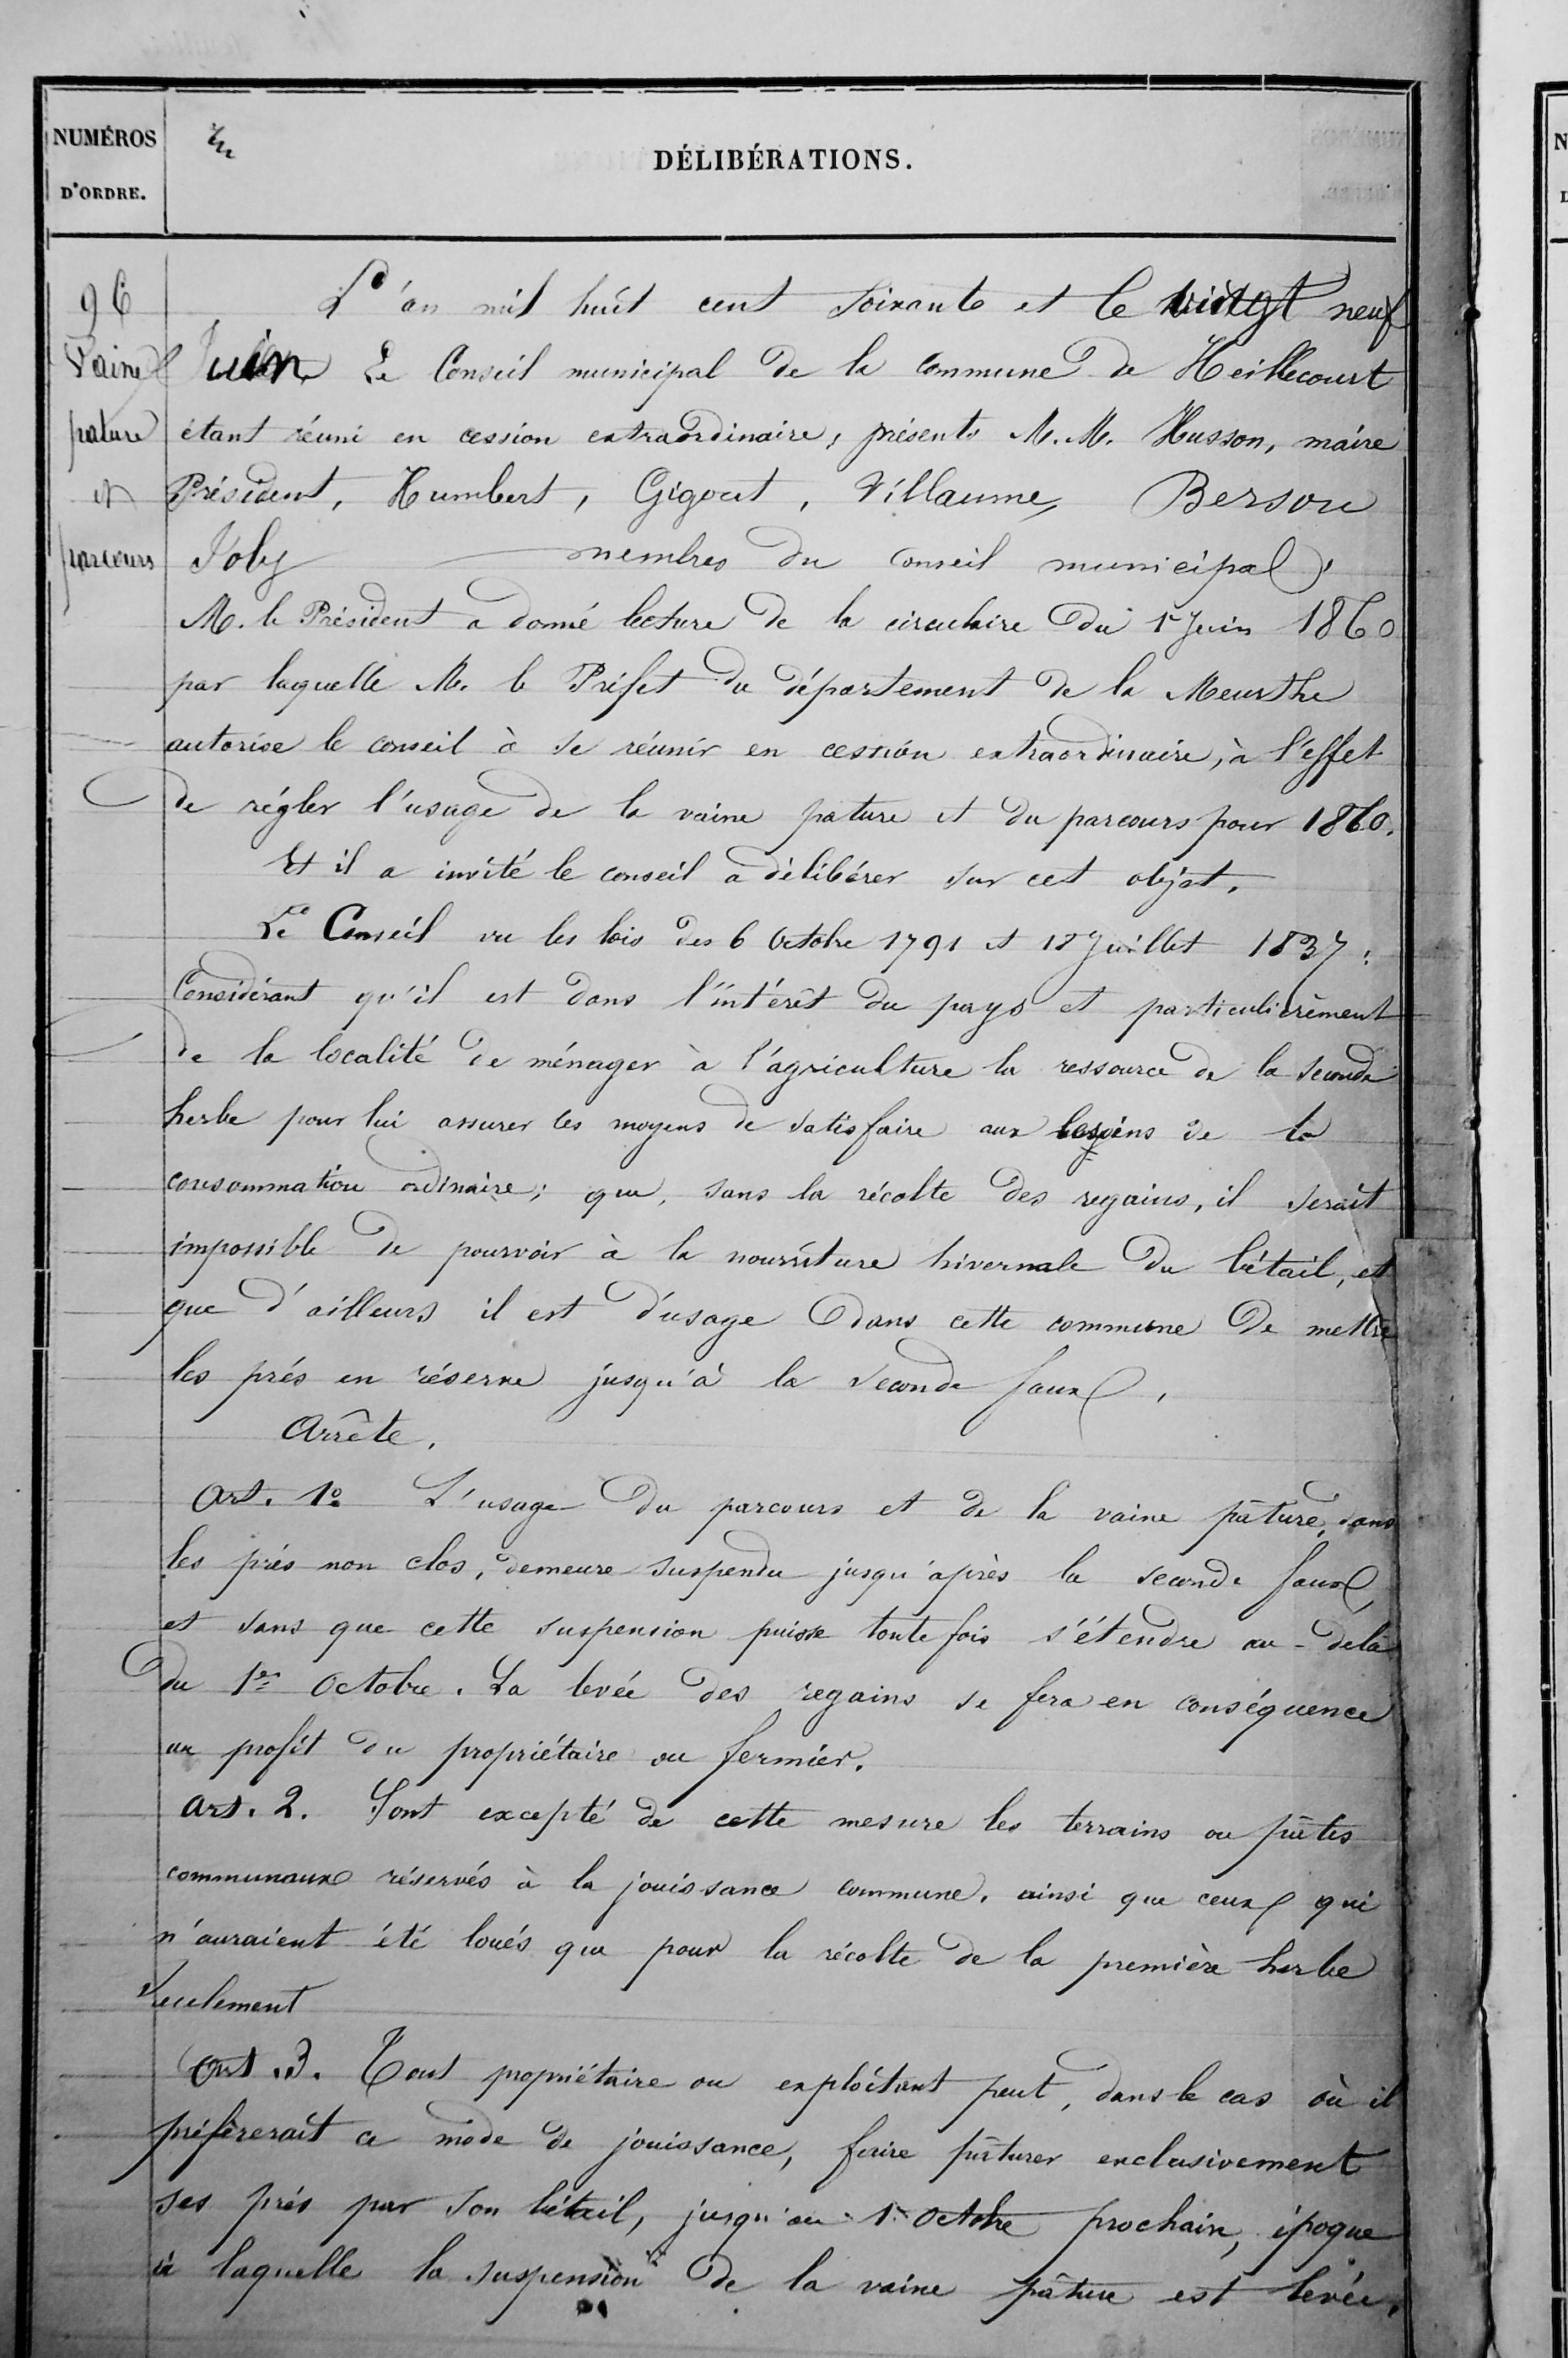 NUMÉROS
D'ORDRE.
DÉLIBÉRATIONS.
96
Vaine
pature
et
parcours
L'an mil huit cent soixante et le vingt neuf
Juin Le Conseil municipal de la commune de Heillecourt
étant réuni en cession extraordinaire, présents M.M. Husson, maire
Président, Humbert, Gigout, Villaume, Berson
Joly membres du conseil municipal,
M. le Président a donné lecture de la circulaire du 1r Juin 1860
par laquelle M. le Préfet du département de la Meurthe
autorise le conseil à se réunir en cession extraordinaire, à l'effet
de régler l'usage de la vaine pature et du parcours pour 1860.
Et il a invité le conseil a délibérer sur cet objet.
Le Conseil vu les lois des 6 Octobre 1791 et 18 Juillet 1837;
Considérant qu'il est dans l'intérêt du pays et particulièrement
de la localité de ménager à l'agriculture la ressource de la seconde
herbe pour lui assurer les moyens de satisfaire aux besoins de la
consommation ordinaire; que, sans la récolte des regains, il serait
impossible de pourvoir à la nourriture hivernale du bétail, et
que d'ailleurs il est d'usage dans cette commune de mettre
les prés en réserve jusqu'à la seconde faux,
Arrête.
Art. 1o L'usage du parcours et de la vaine pâture, dans
les prés non clos, demeure suspendu jusqu'après la seconde faux,
et sans que cette suspension puisse toute fois s'étendre au-delà
du 1er Octobre. La levée des regains se fera en conséquence
au profit du propriétaire ou fermier.
Art. 2. Sont excepté de cette mesure les terrains ou pâtis
communaux réservés à la jouissance commune, ainsi que ceux qui
n'auraient été loués que pour la récolte de la première herbe
seulement
Art. 3. Tout propriétaire ou exploitant peut, dans le cas où il
préfèrerait ce mode de jouissance, faire pâturer exclusivement
ses prés par son bétail, jusqu'au 1r Octobre prochain, époque
à laquelle la suspension de la vaine pâture est levée.